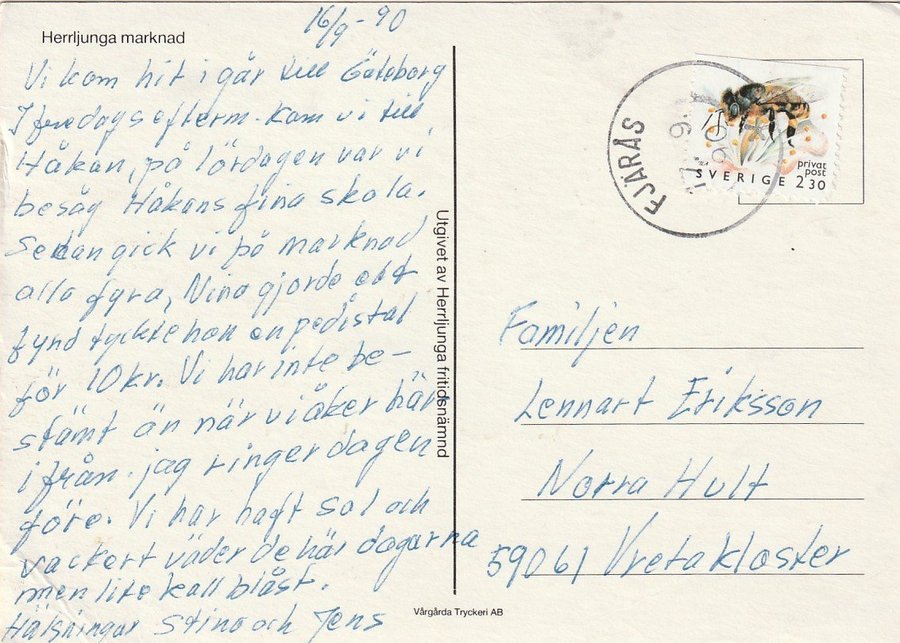 Herrljunga marknad
16/9-90
Vi kom hit i går till Göteborg
I fredags efterm. kom vi till
Håkan, på lördagen var vi
besåg Håkans fina skola.
Sedan gick vi på marknad
alla fyra, Nina gjorde ett
fynd tyckte hon en pedistal
för 10 kr. Vi har inte be-
stämt än när vi åker här
ifrån. jag ringer dagen
före. Vi har haft sol och
vackert väder de här dagarna
men lite kall blåst.
Hälsningar Stina och Jens
Utgivet av Herrljunga fritidsnämnd
Vårgårda Tryckeri AB
FJÄRÅS
privat
post
SVERIGE 2 30
Familjen
Lennart Eriksson
Norra Hult
59061 Vretakloster